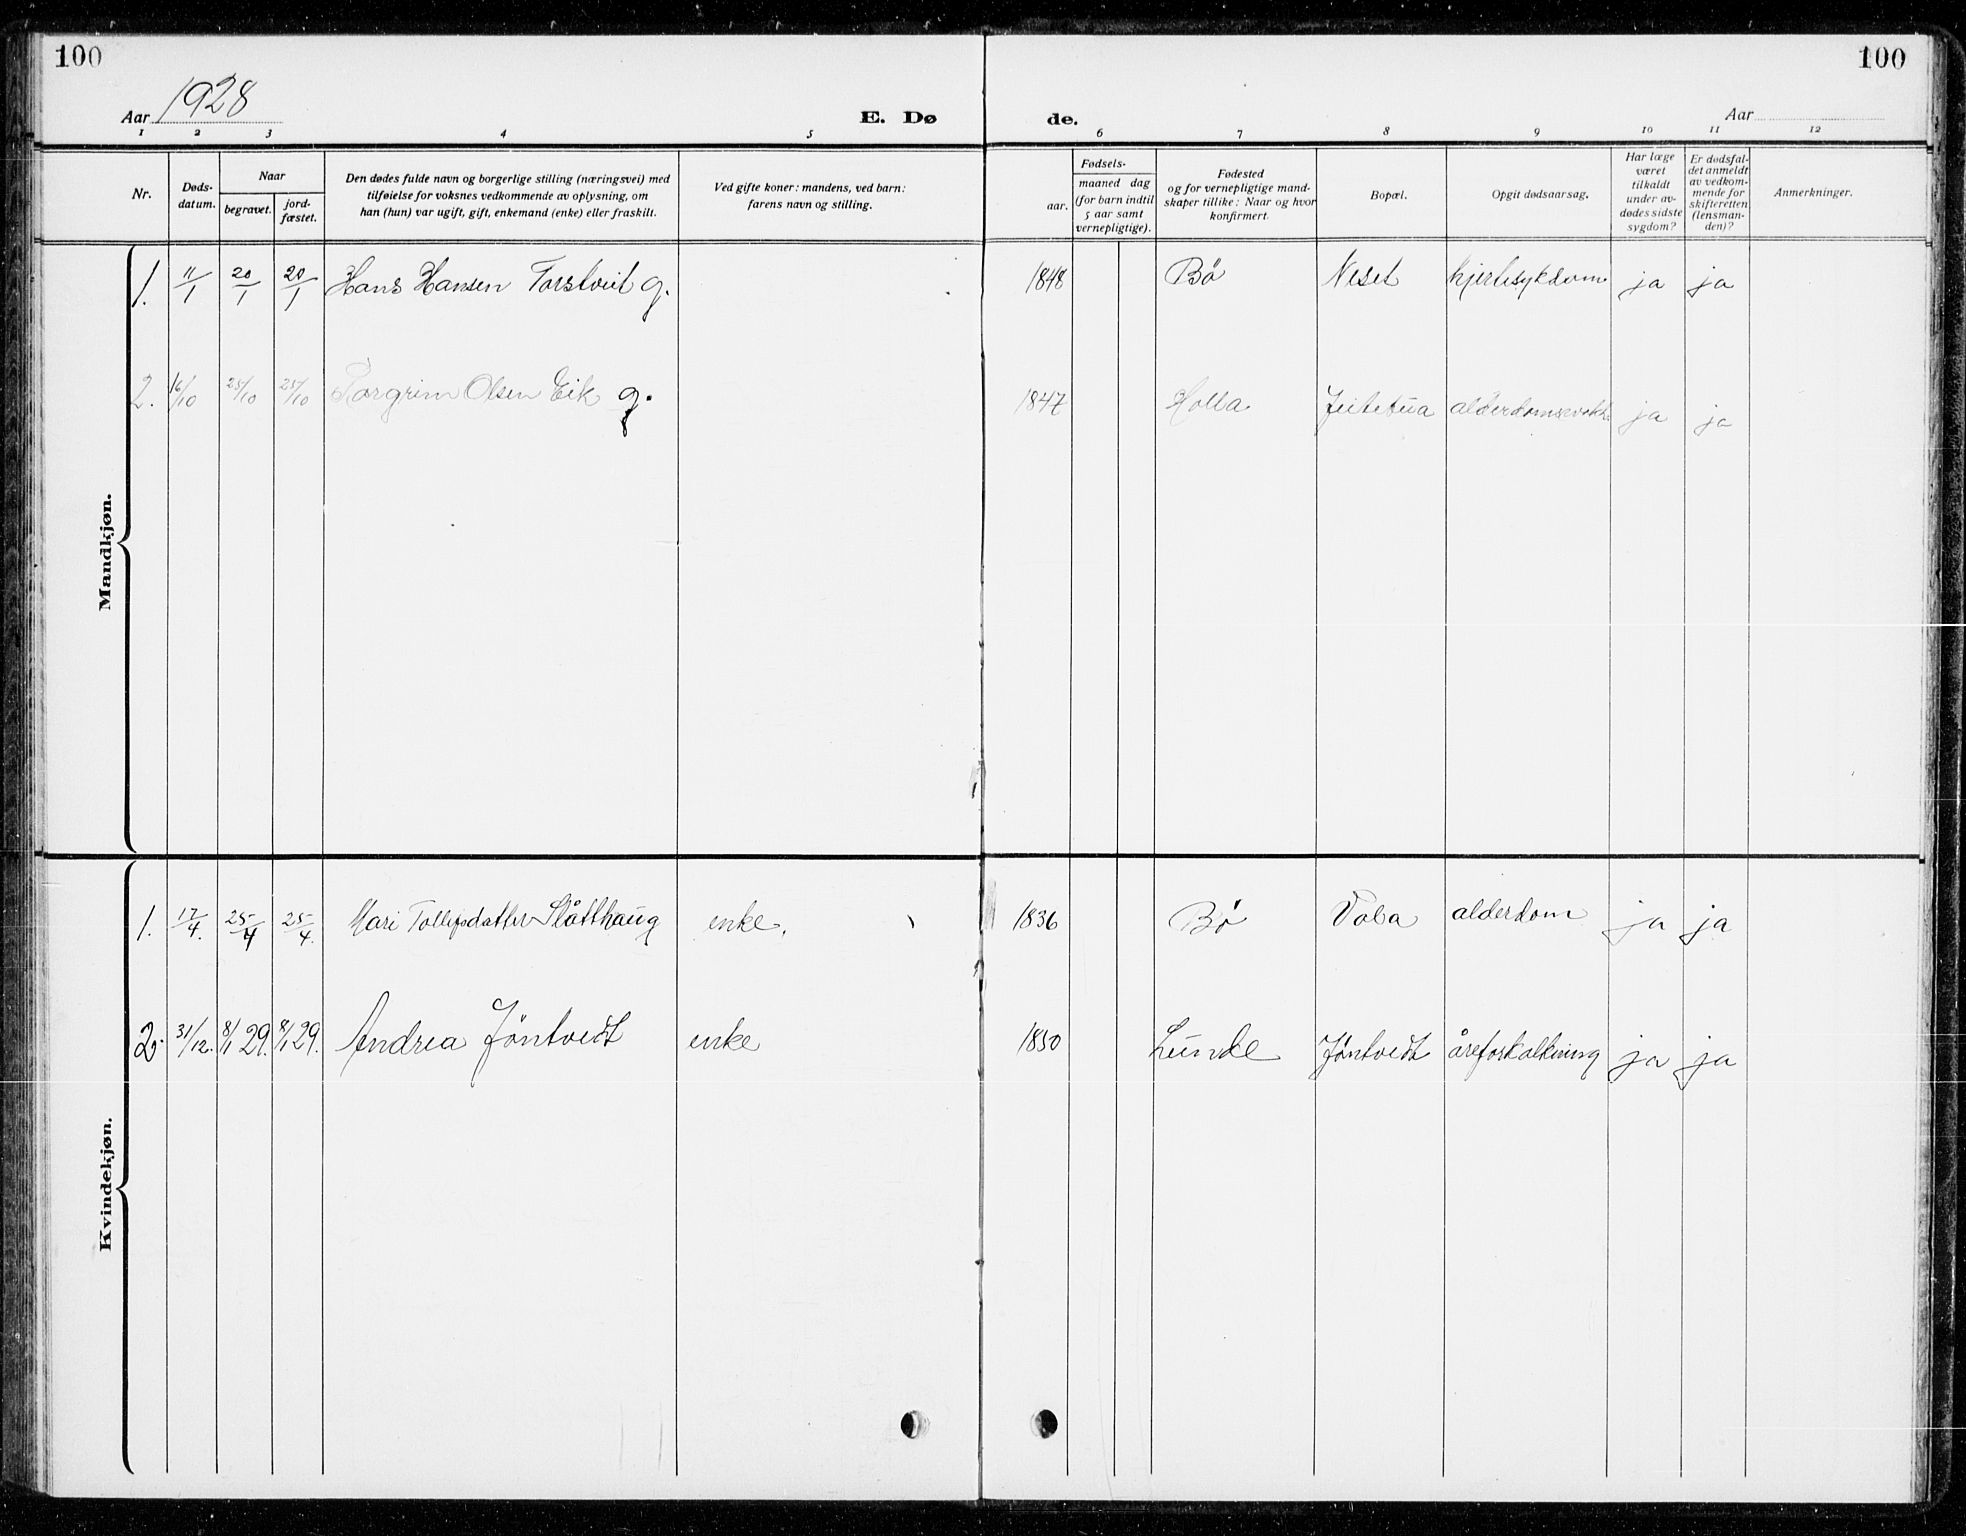 100
100
Aar 1928
E. Dø
de.
Aar
1 2 3 4 5 6 7 8 9 10 11 12
Nr.
Døds-
datum.
Naar
begravet.
jord-
fæstet.
Den dødes fulde navn og borgerlige stilling (næringsvei) med
tilføielse for voksnes vedkommende av oplysning, om
han (hun) var ugift, gift, enkemand (enke) eller fraskilt.
Ved gifte koner: mandens, ved barn:
farens navn og stilling.
Fødsels-
aar.
maaned dag
(for barn indtil
5 aar samt
vernepligtige).
Fødested
og for vernepligtige mand-
skaper tillike: Naar og hvor
konfirmert.
Bopæl.
Opgit dødsaarsag.
Har læge
været
tilkaldt
under av-
dødes sidste
sygdom?
Er dødsfal-
det anmeldt
av vedkom-
mende for
skifteretten
(lensman-
den)?
Anmerkninger.
Mandkjøn.
1. 11/1 20/1 20/1 Hans Hansen Torstveit g. 1848 Bø Neset hjertesykdom ja ja
2. 16/10 25/10 25/10 Torgrim Olsen Eik g. 1847 Holla ja ja
Kvindekjøn.
1. 17/4. 25/4 25/4. Mari Tollefsdatter Slåtthaug enke. 1836 Bø alderdom ja ja
2. 31/12. 8/1 29. 8/1 29. Andrea Jöntvedt enke 1850 Lunde Jöntvedt åreforkalkning ja ja